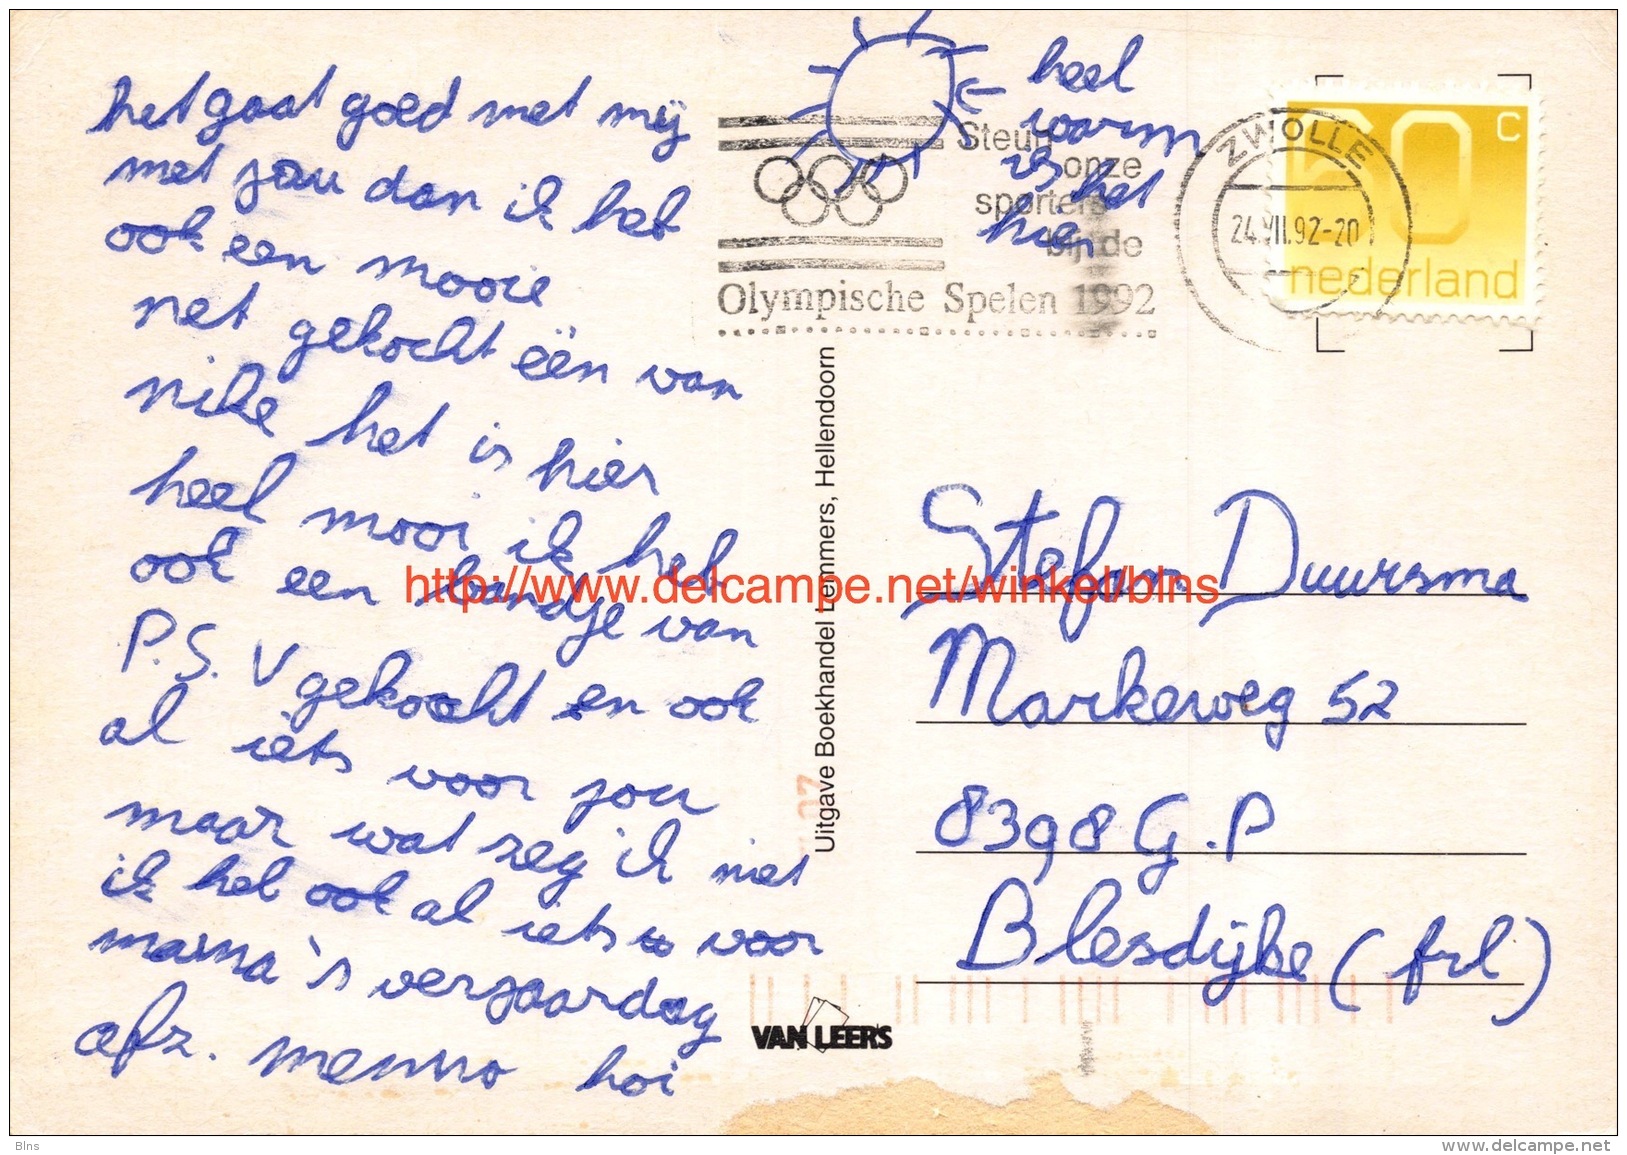 het gaat goed met mij
met jou dan ik heb
ook een mooie
net gekocht één van
nike het is hier
heel mooi ik heb
ook een bandje van
P.S.V gekocht en ook
al iets voor jou
maar wat zeg ik niet
ik heb ook al iets voor
mama's verjaardag
afz. menno hoi
heel
warm
is het
hier
Steun
onze
sporters
bij de
Olympische Spelen 1992
ZWOLLE
24.VII.92-20
60 c
nederland
Uitgave Boekhandel Lemmers, Hellendoorn
http://www.delcampe.net/winkel/blns
Stefan Duursma
Markeweg 52
8398 G.P
Blesdijke (frl)
VAN LEER'S
Blns
www.delcampe.net